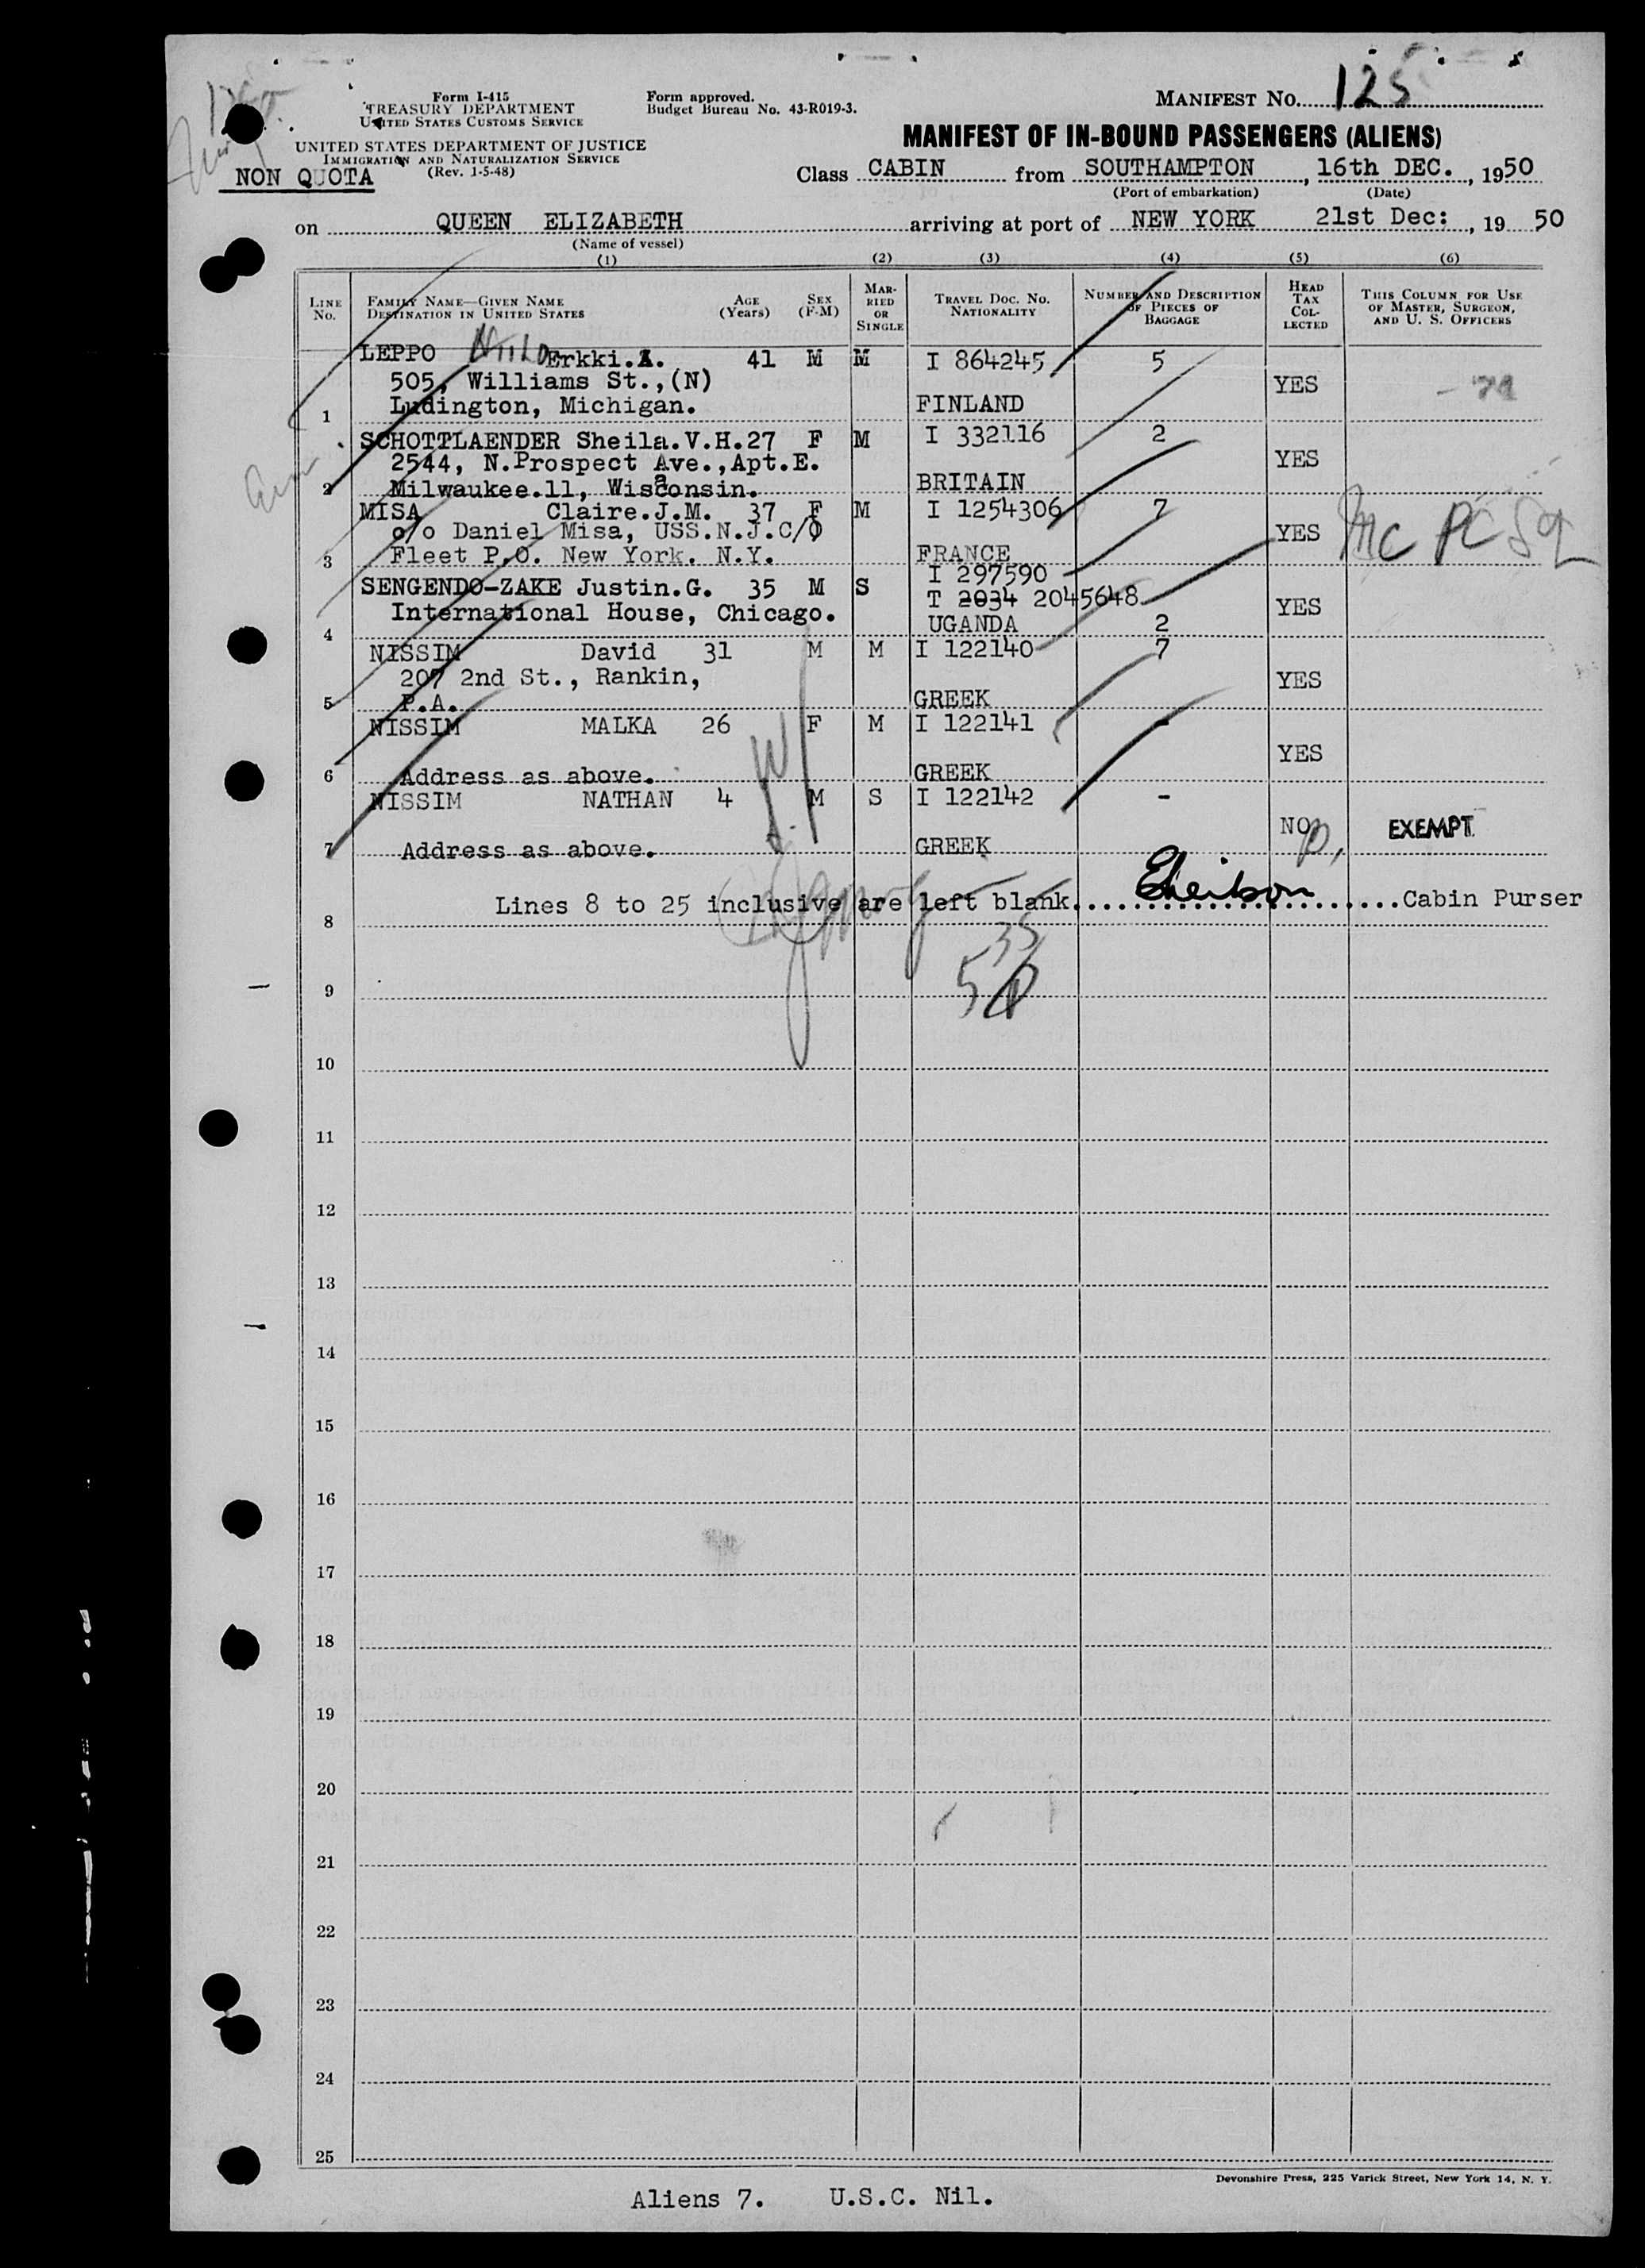 Form I-415
TREASURY DEPARTMENT
UNITED STATES CUSTOMS SERVICE
UNITED STATES DEPARTMENT OF JUSTICE
IMMIGRATION AND NATURALIZATION SERVICE
(Rev. 1-5-48)
NON QUOTA
Form approved.
Budget Bureau No. 43-R019-3.
MANIFEST No. 125
MANIFEST OF IN-BOUND PASSENGERS (ALIENS)
Class CABIN from SOUTHAMPTON, 16th DEC., 1950
(Port of embarkation) (Date)
on QUEEN ELIZABETH arriving at port of NEW YORK 21st Dec:, 19 50
(Name of vessel)
(1) (2) (3) (4) (5) (6)
LINE No. FAMILY NAME—GIVEN NAME DESTINATION IN UNITED STATES AGE (Years) SEX (F-M) MARRIED OR SINGLE TRAVEL DOC. NO. NATIONALITY NUMBER AND DESCRIPTION OF PIECES OF BAGGAGE HEAD TAX COLLECTED THIS COLUMN FOR USE OF MASTER, SURGEON, AND U. S. OFFICERS
LEPPO Niilo Erkki. 41 M M I 864245 5
505, Williams St.,(N) YES
1 Ludington, Michigan. FINLAND
SCHOTTLAENDER Sheila.V.H.27 F M I 332116 2
2544, N.Prospect Ave.,Apt.E. YES
2 Milwaukee.11, Wisconsin. BRITAIN
MISA Claire.J.M. 37 F M I 1254306 7
c/o Daniel Misa, USS.N.J.C/O YES
3 Fleet P.O. New York. N.Y. FRANCE
SENGENDO-ZAKE Justin.G. 35 M S I 297590
T 2034 2045648
International House, Chicago. YES
4 UGANDA 2
NISSIM David 31 M M I 122140 7
207 2nd St., Rankin, YES
5 P.A. GREEK
NISSIM MALKA 26 F M I 122141 -
YES
6 Address as above. GREEK
NISSIM NATHAN 4 M S I 122142 -
NO EXEMPT
7 Address as above. GREEK
Lines 8 to 25 inclusive are left blank. Cabin Purser
8
9
10
11
12
13
14
15
16
17
18
19
20
21
22
23
24
25
Devonshire Press, 225 Varick Street, New York 14, N. Y.
Aliens 7. U.S.C. Nil.